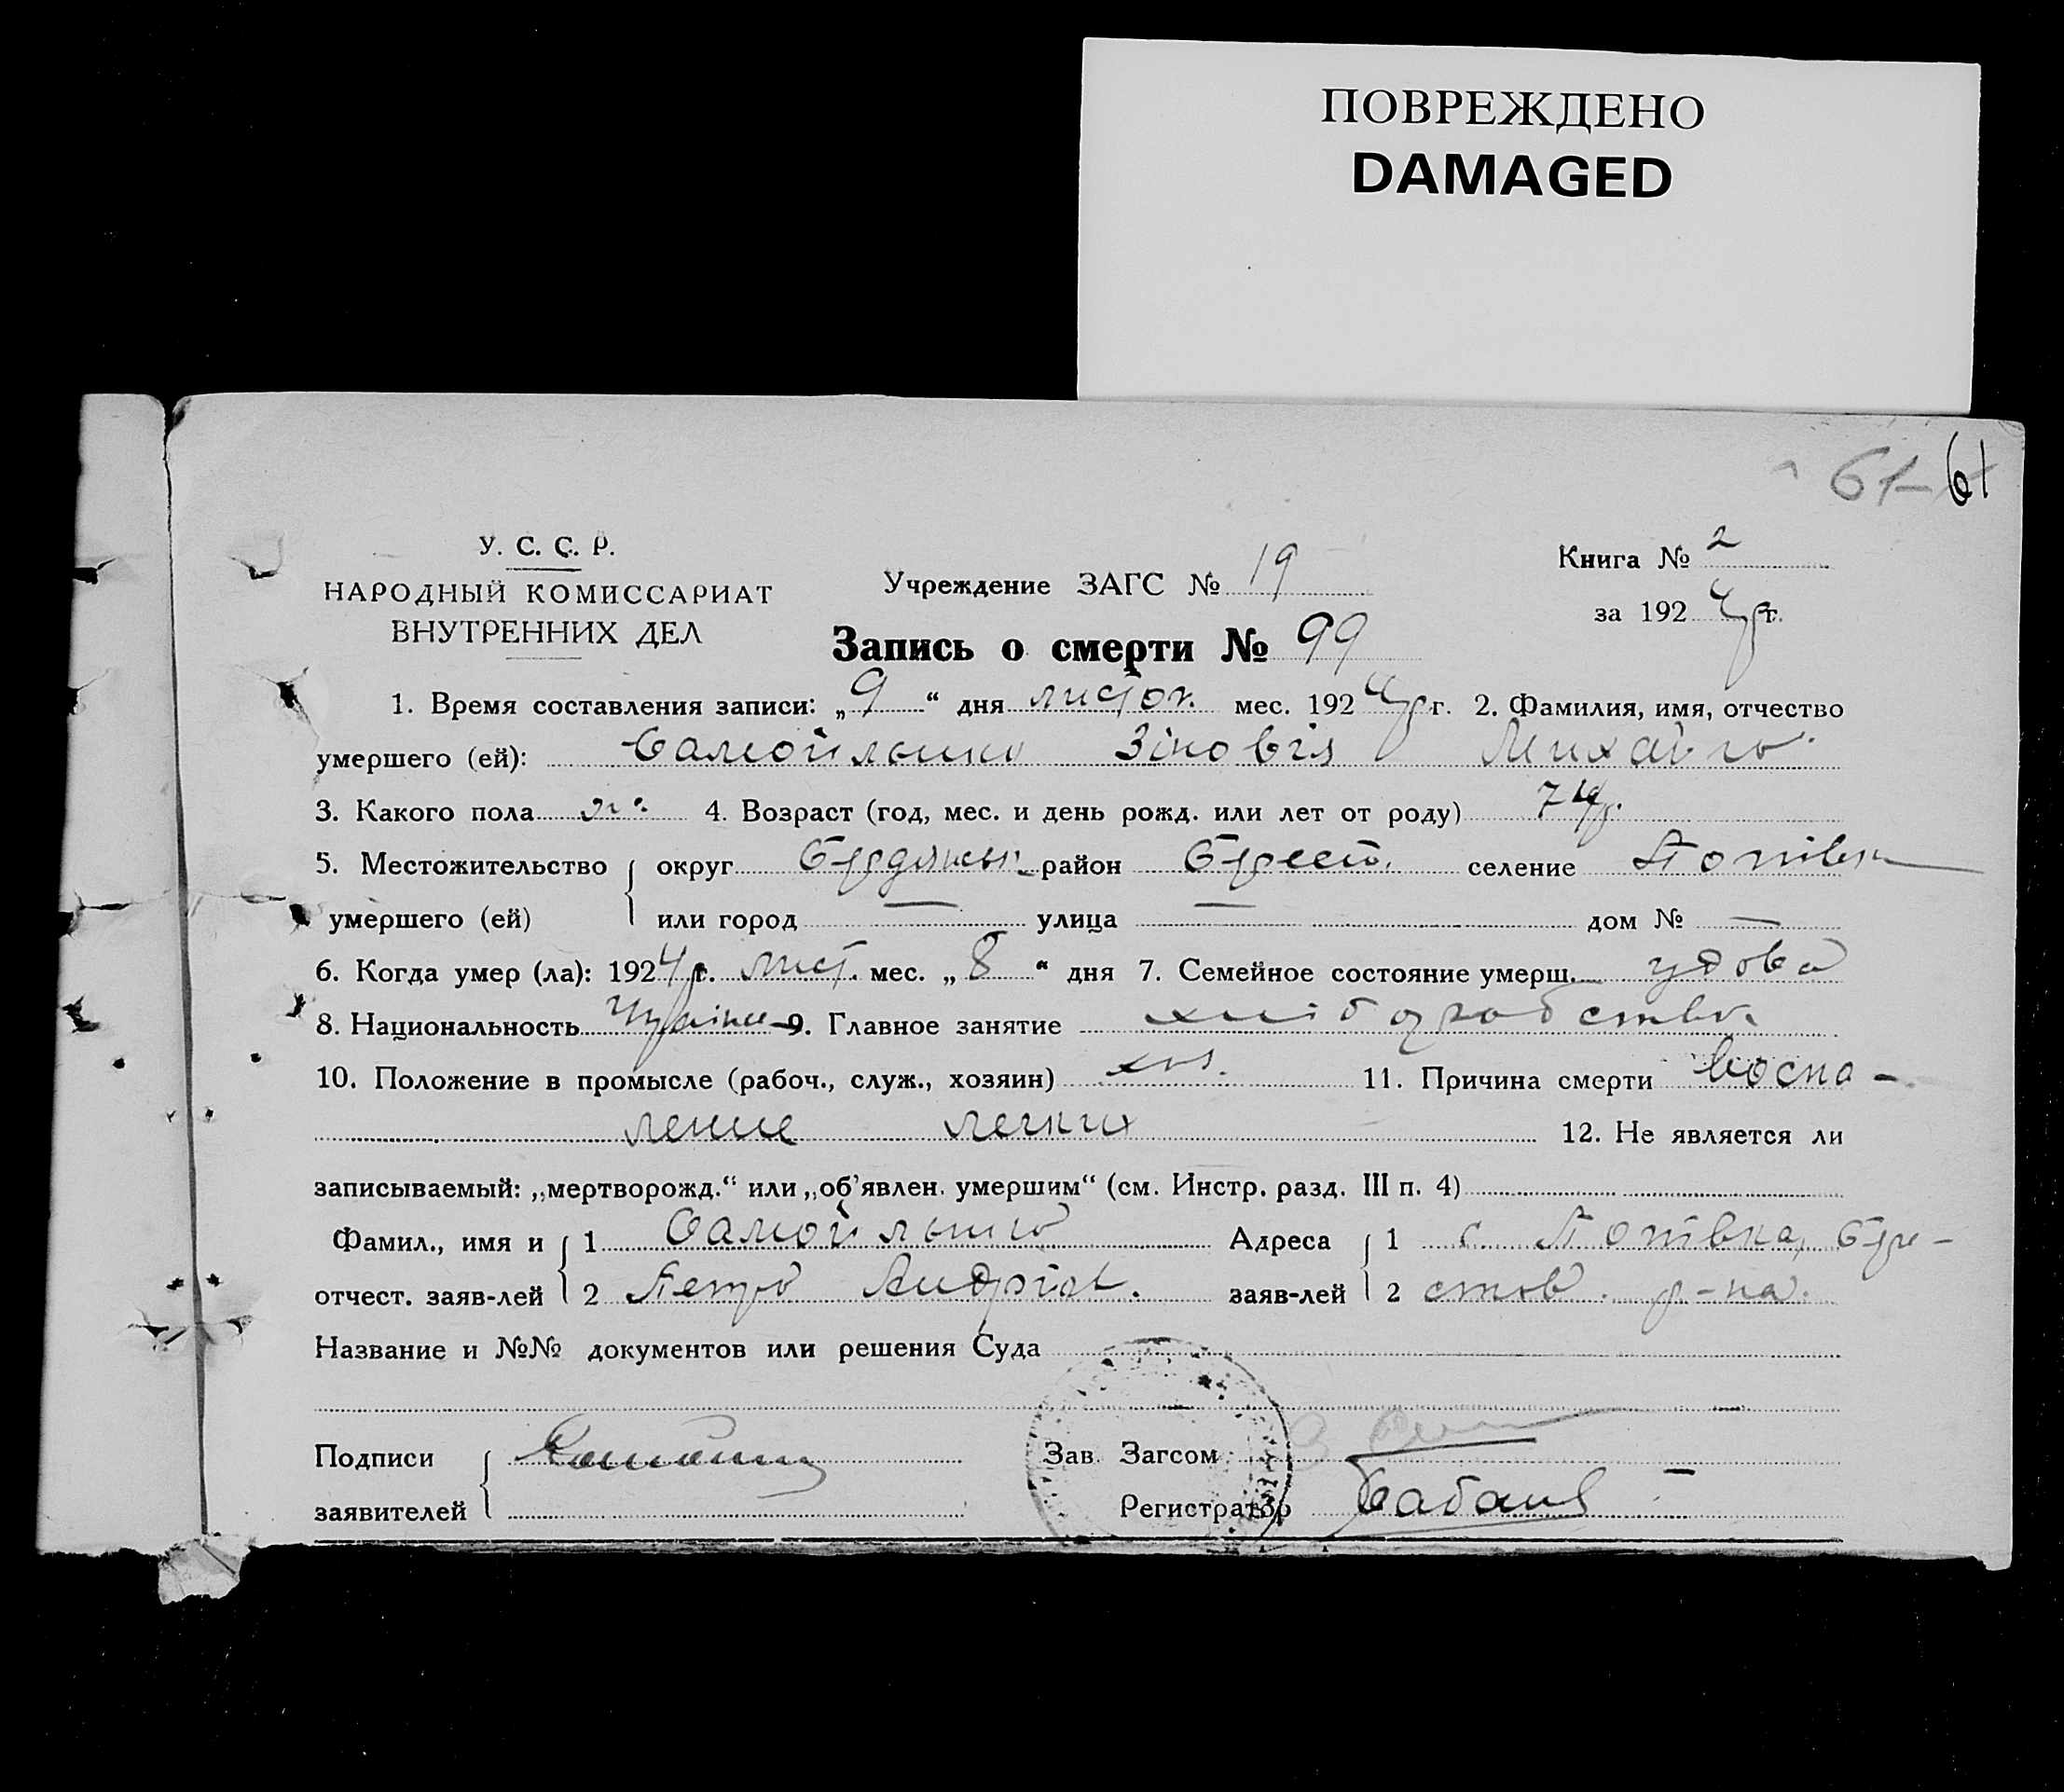 ПОВРЕЖДЕНО
DAMAGED
61 61
У. С. С. Р.
НАРОДНЫЙ КОМИССАРИАТ
ВНУТРЕННИХ ДЕЛ
Учреждение ЗАГС № 19
Книга № 2
за 1924 р г.
Запись о смерти № 99
1. Время составления записи: „9“ дня листоп. мес. 1924 р г. 2. Фамилия, имя, отчество
умершего (ей): Самойленко Зіновія Михайло.
3. Какого пола 4. Возраст (год, мес. и день рожд. или лет от роду) 74 р.
5. Местожительство округ район селение Попівка
умершего (ей) или город — улица — дом № —
6. Когда умер (ла): 1924 р г. лист. мес. „8“ дня 7. Семейное состояние умерш. удова
8. Национальность 9. Главное занятие хліборобство
10. Положение в промысле (рабоч., служ., хозяин) хоз. 11. Причина смерти воспа-
ление легких 12. Не является ли
записываемый: „мертворожд.“ или „об'явлен. умершим“ (см. Инстр. разд. III п. 4)
Фамил., имя и 1 Самойленко Адреса 1 с. Попівка,
отчест. заяв-лей 2 Петро Андрієв. заяв-лей 2 стов. р-на.
Название и №№ документов или решения Суда
Подписи Зав. Загсом
заявителей Регистратор